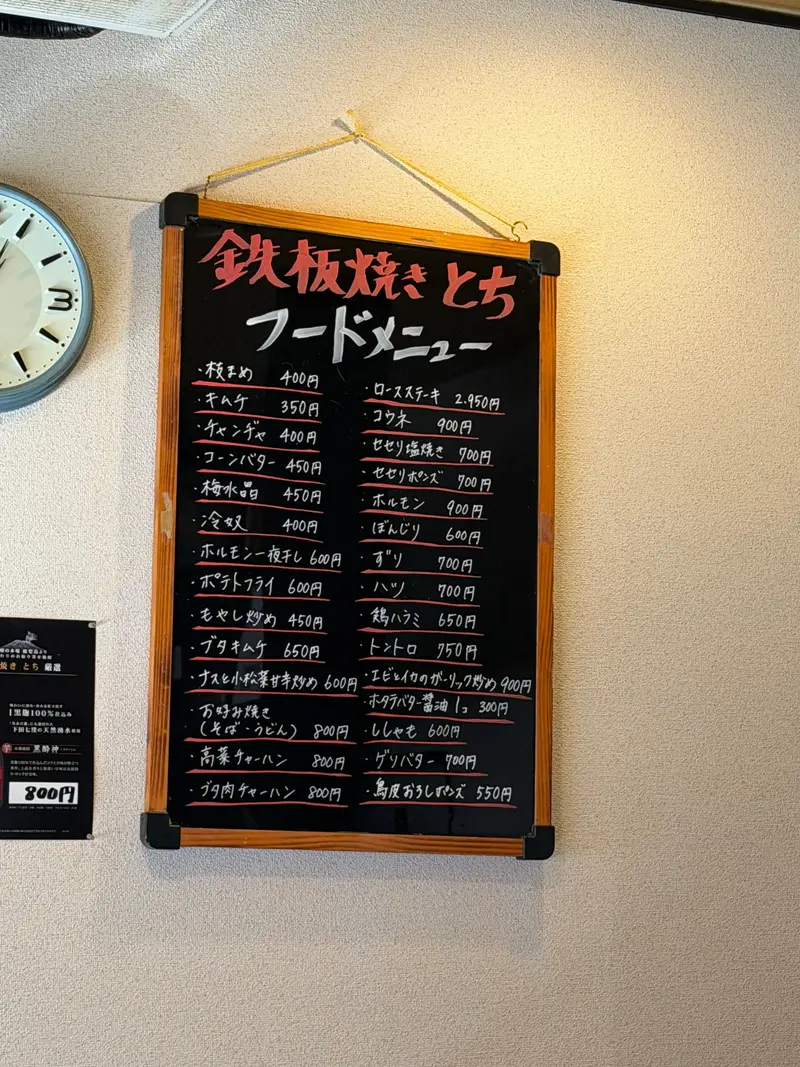 鉄板焼き とち
フードメニュー
・枝まめ 400円
・キムチ 350円
・チャンヂャ 400円
・コーンバター 450円
・梅水晶 450円
・冷奴 400円
・ホルモン一夜干し 600円
・ポテトフライ 600円
・もやし炒め 450円
・ブタキムチ 650円
・ナスと小松菜甘辛炒め 600円
・お好み焼き
(そば・うどん) 800円
・高菜チャーハン 800円
・ブタ肉チャーハン 800円
・ロースステーキ 2.950円
・コウネ 900円
・セセリ塩焼き 700円
・セセリポンズ 700円
・ホルモン 900円
・ぼんじり 600円
・ずり 700円
・ハツ 700円
・鶏ハラミ 650円
・トントロ 750円
・エビとイカのガーリック炒め 900円
・ホタテバター醤油 1コ 300円
・ししゃも 600円
・ゲリバター 700円
・鳥皮おろしポンズ 550円
3
焼き とち 厳選
黒麹100%仕込み
下田七僅の天然湧水
芋
黒酔神
800円